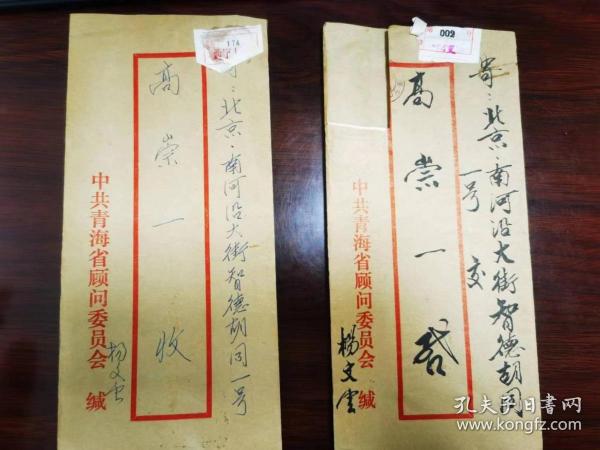 174
寄:北京·南河沿大街智德胡同一号
高崇一收
中共青海省顾问委员会 缄
杨文云
002
寄:北京·南河沿大街智德胡同
一号 交
高崇一启
中共青海省顾问委员会 缄
杨文云
孔夫子旧书网
www.kongfz.com